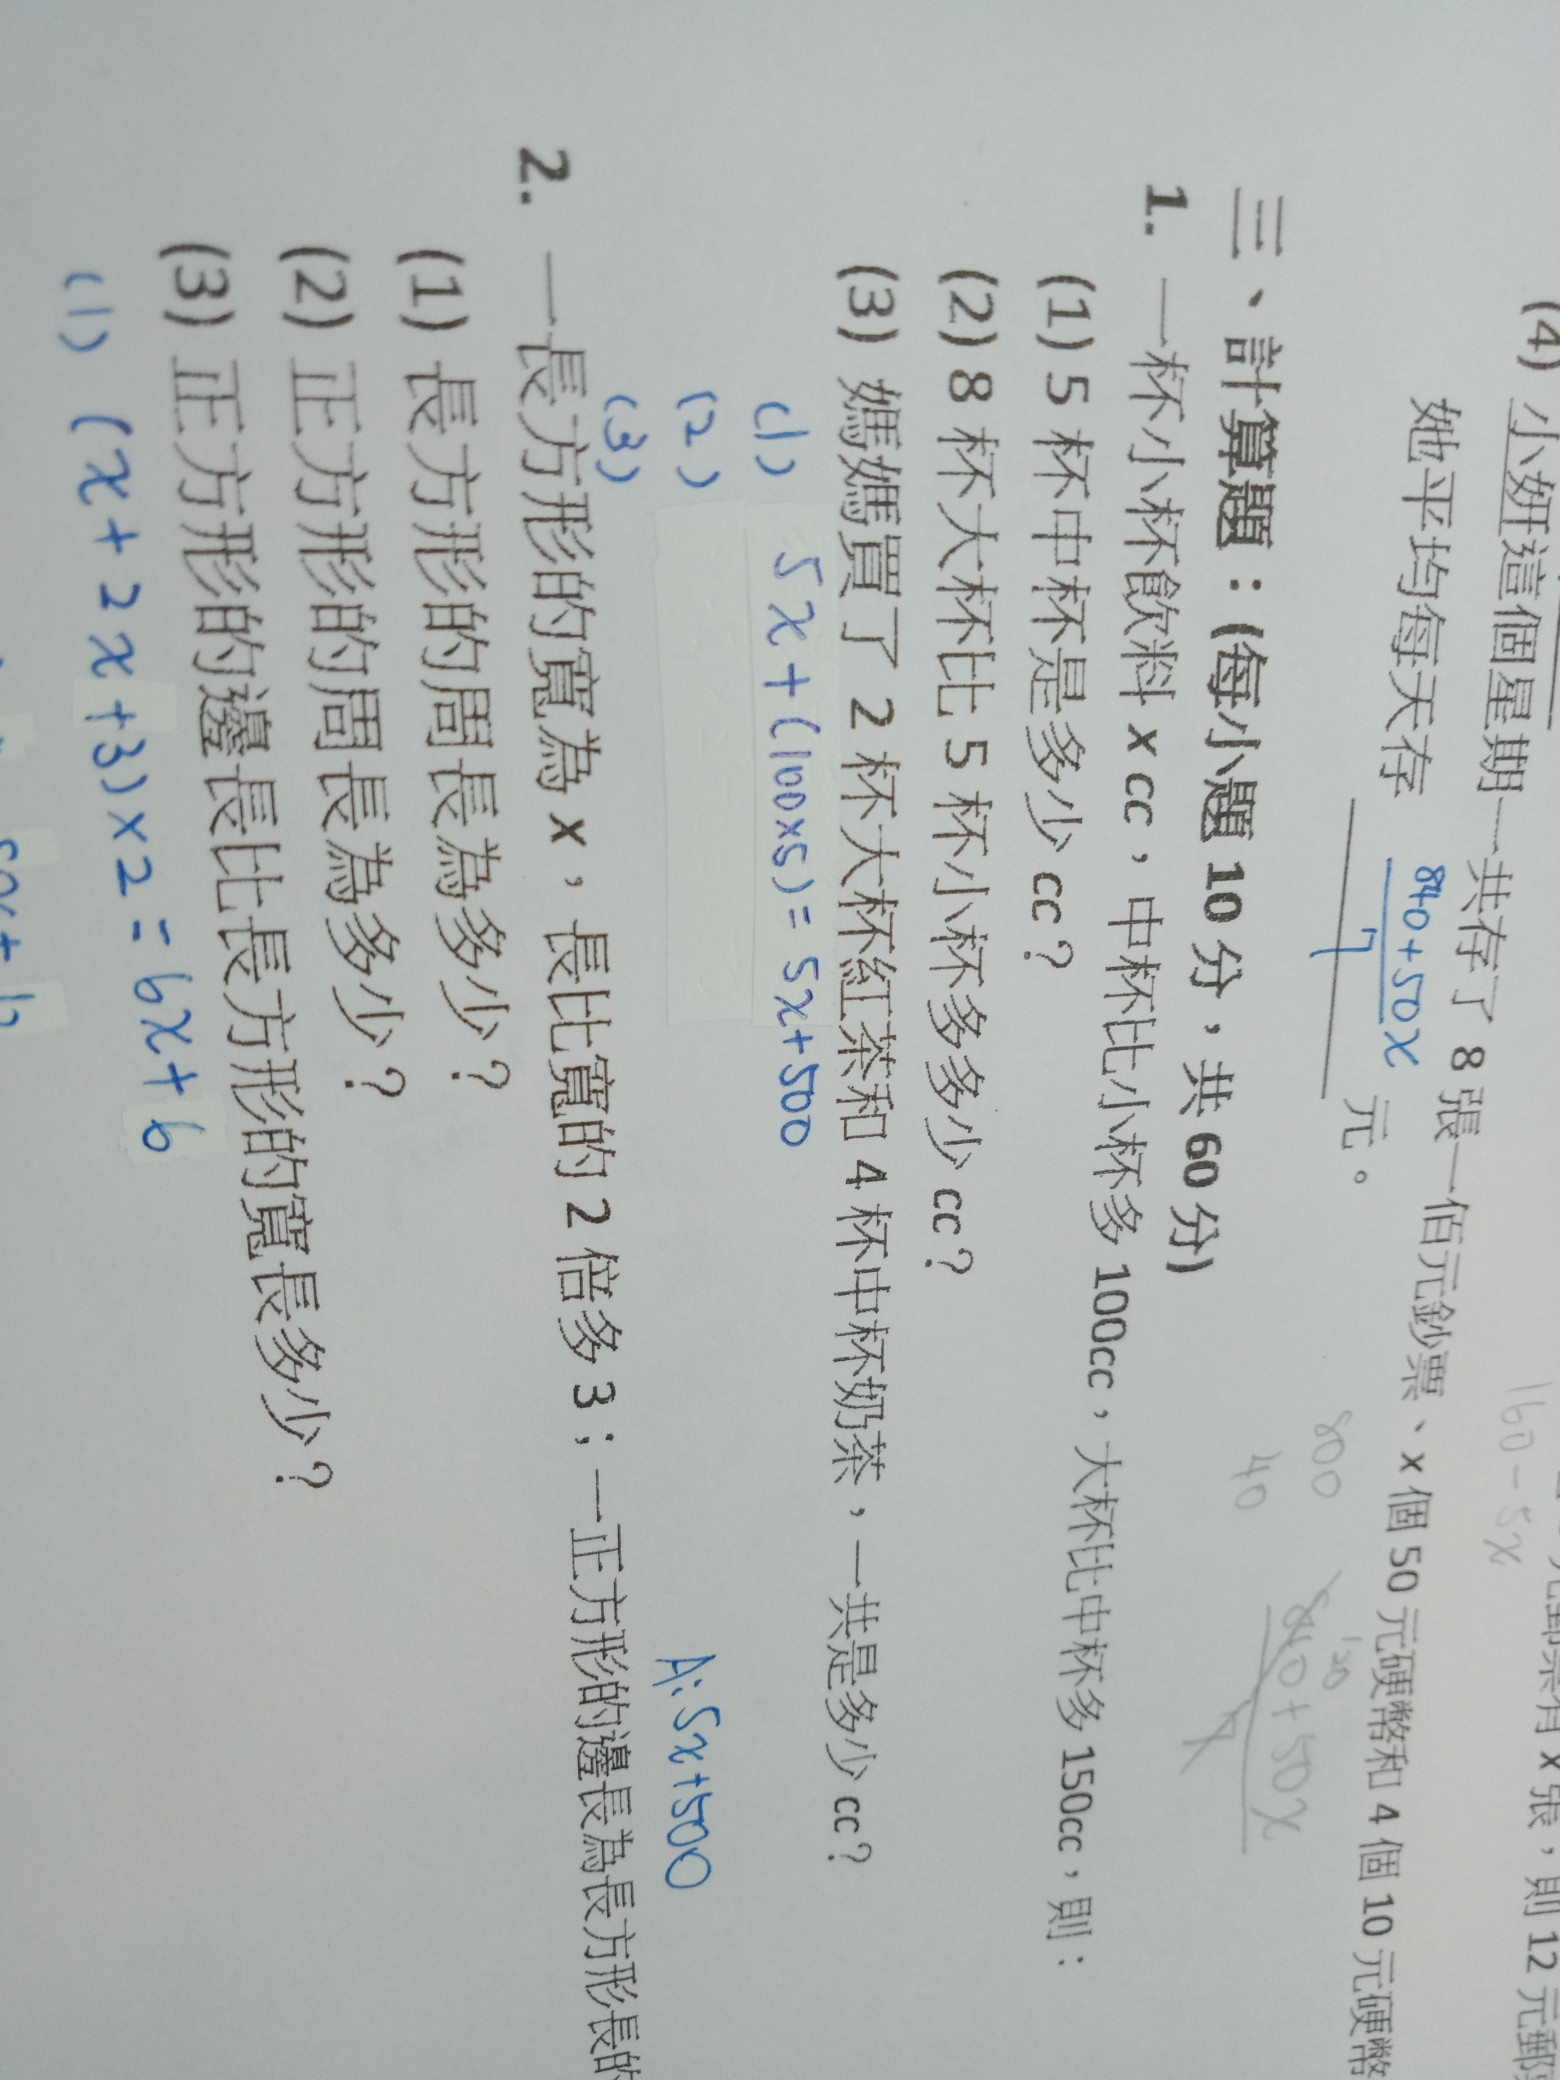 160-5x
元郵票有 x 張，則 12 元郵
(4) 小妍這個星期一共存了 8 張一佰元鈔票、x 個 50 元硬幣和 4 個 10 元硬幣
她平均每天存 840+50x
7
元。
800
40
120
840+50x
7
三、計算題：(每小題 10 分，共 60 分)
1. 一杯小杯飲料 x cc，中杯比小杯多 100cc，大杯比中杯多 150cc，則：
(1) 5 杯中杯是多少 cc？
(2) 8 杯大杯比 5 杯小杯多多少 cc？
(3) 媽媽買了 2 杯大杯紅茶和 4 杯中杯奶茶，一共是多少 cc？
(1) 5x+(100×5)=5x+500
(2)
(3)
A:5x+500
2. 一長方形的寬為 x，長比寬的 2 倍多 3；一正方形的邊長為長方形長的
(1) 長方形的周長為多少？
(2) 正方形的周長為多少？
(3) 正方形的邊長比長方形的寬長多少？
(1) (x+2x+3)×2=6x+6